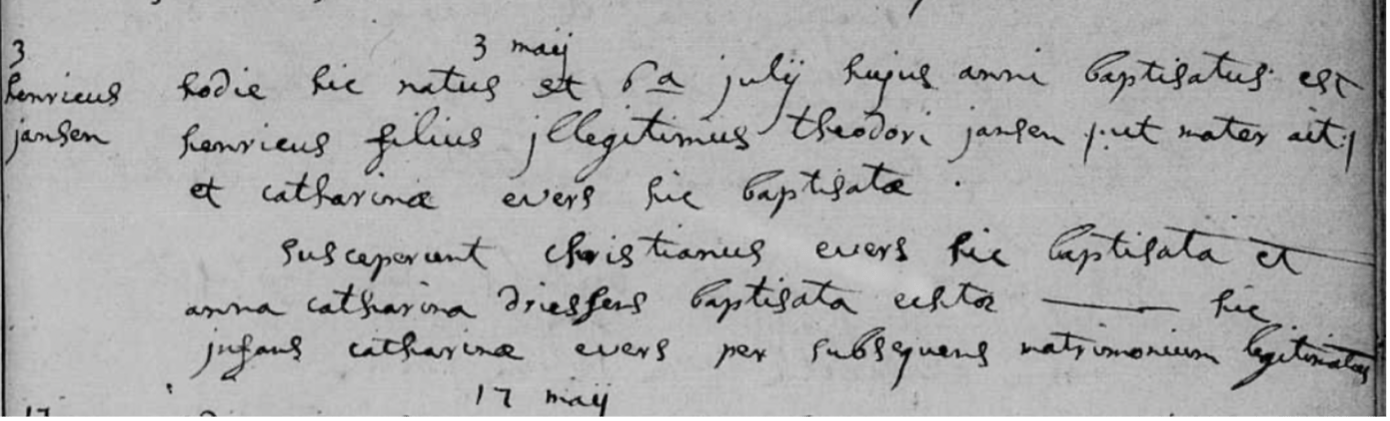 3 maij
3
henricus
jansen
hodie hic natus et 6a julij hujus anni baptisatus est
henricus filius jllegitimus theodori jansen /:ut mater ait:/
et catharinæ evers hic baptisatæ .
susceperunt christianus evers hic baptisata et
anna catharina driessens baptisata echtæ —— hic
jnfans catharinæ evers per subsequens matrimonium legitimatus
17 maij
17